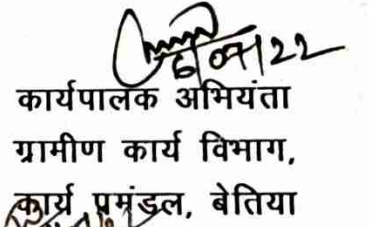 6/07/22
कार्यपालक अभियंता
ग्रामीण कार्य विभाग,
कार्य प्रमंडल, बेतिया